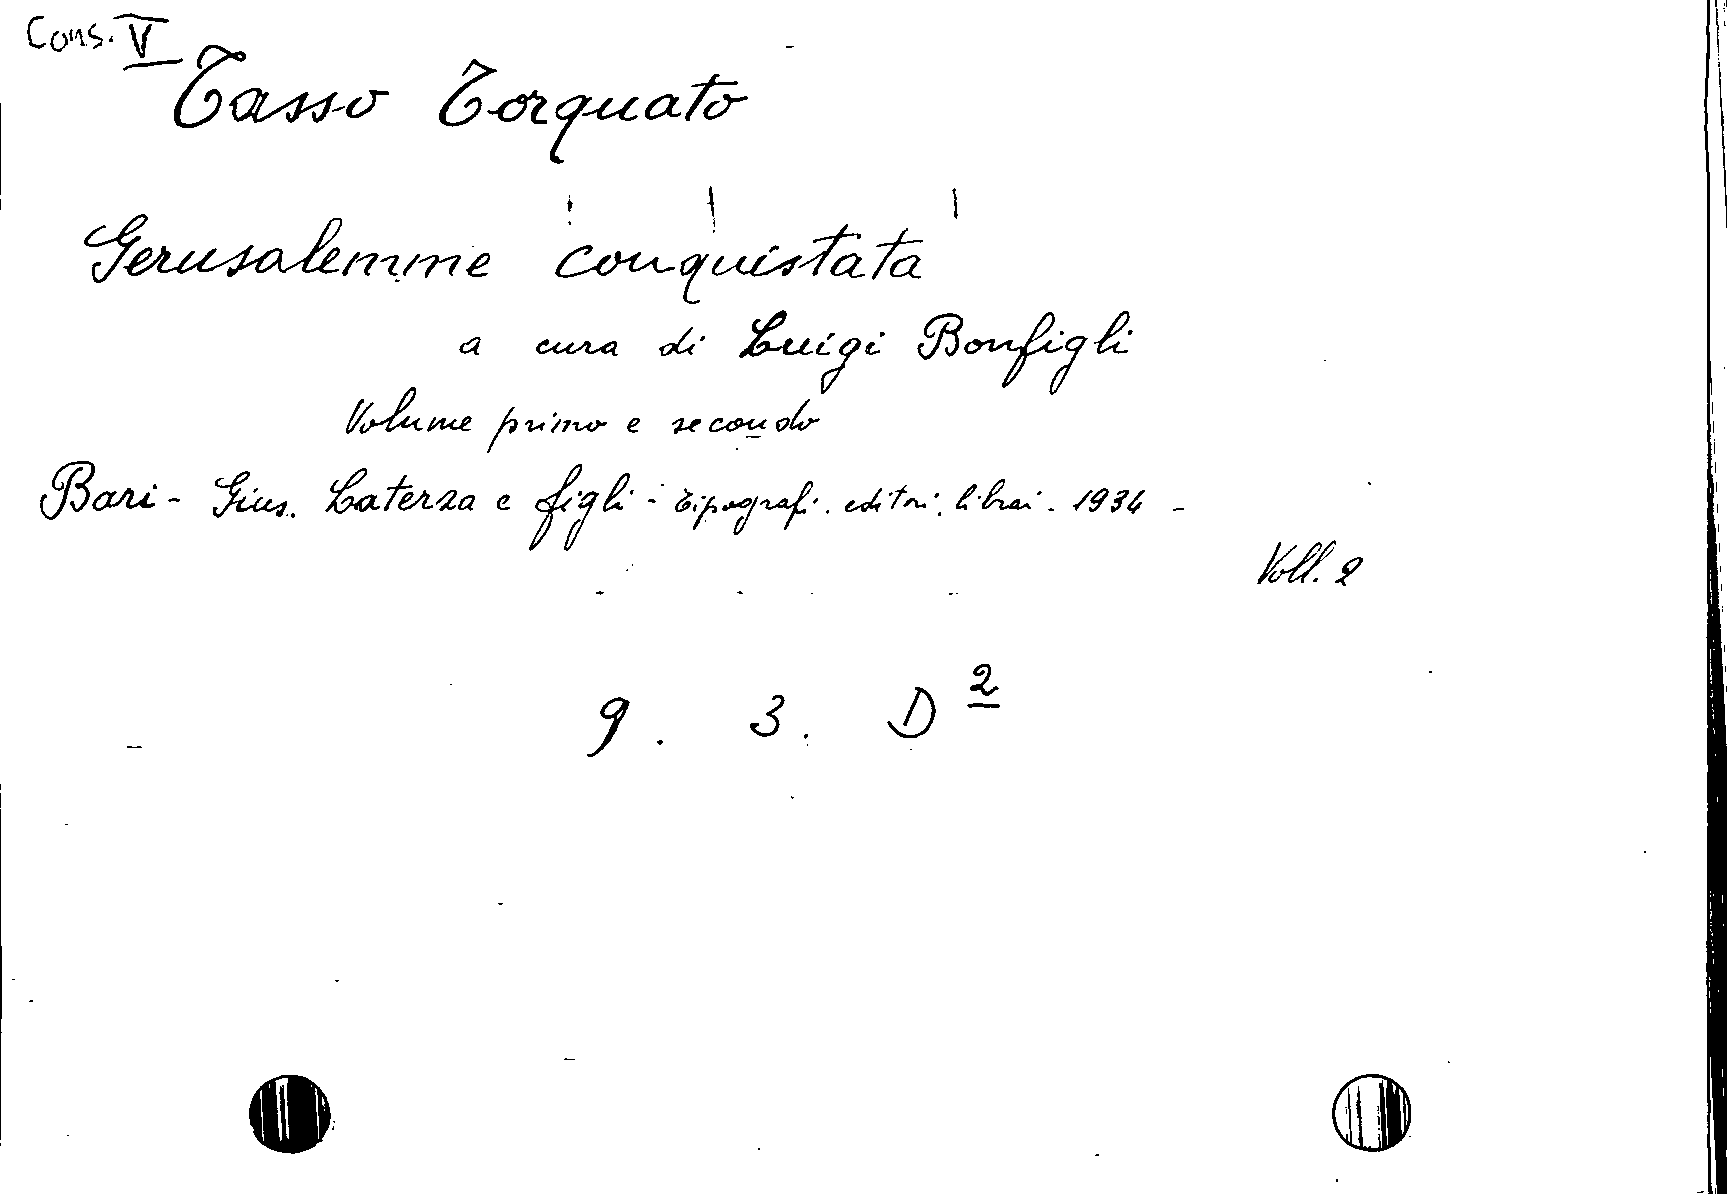 Cons. V
Tasso Torquato
Gerusalemme conquistata
a cura di Luigi Bonfigli
Volume primo e secondo
Bari - Gius. Laterza e figli - tipografi. editori. librai. 1934 -
Voll. 2
9. 3. D 2